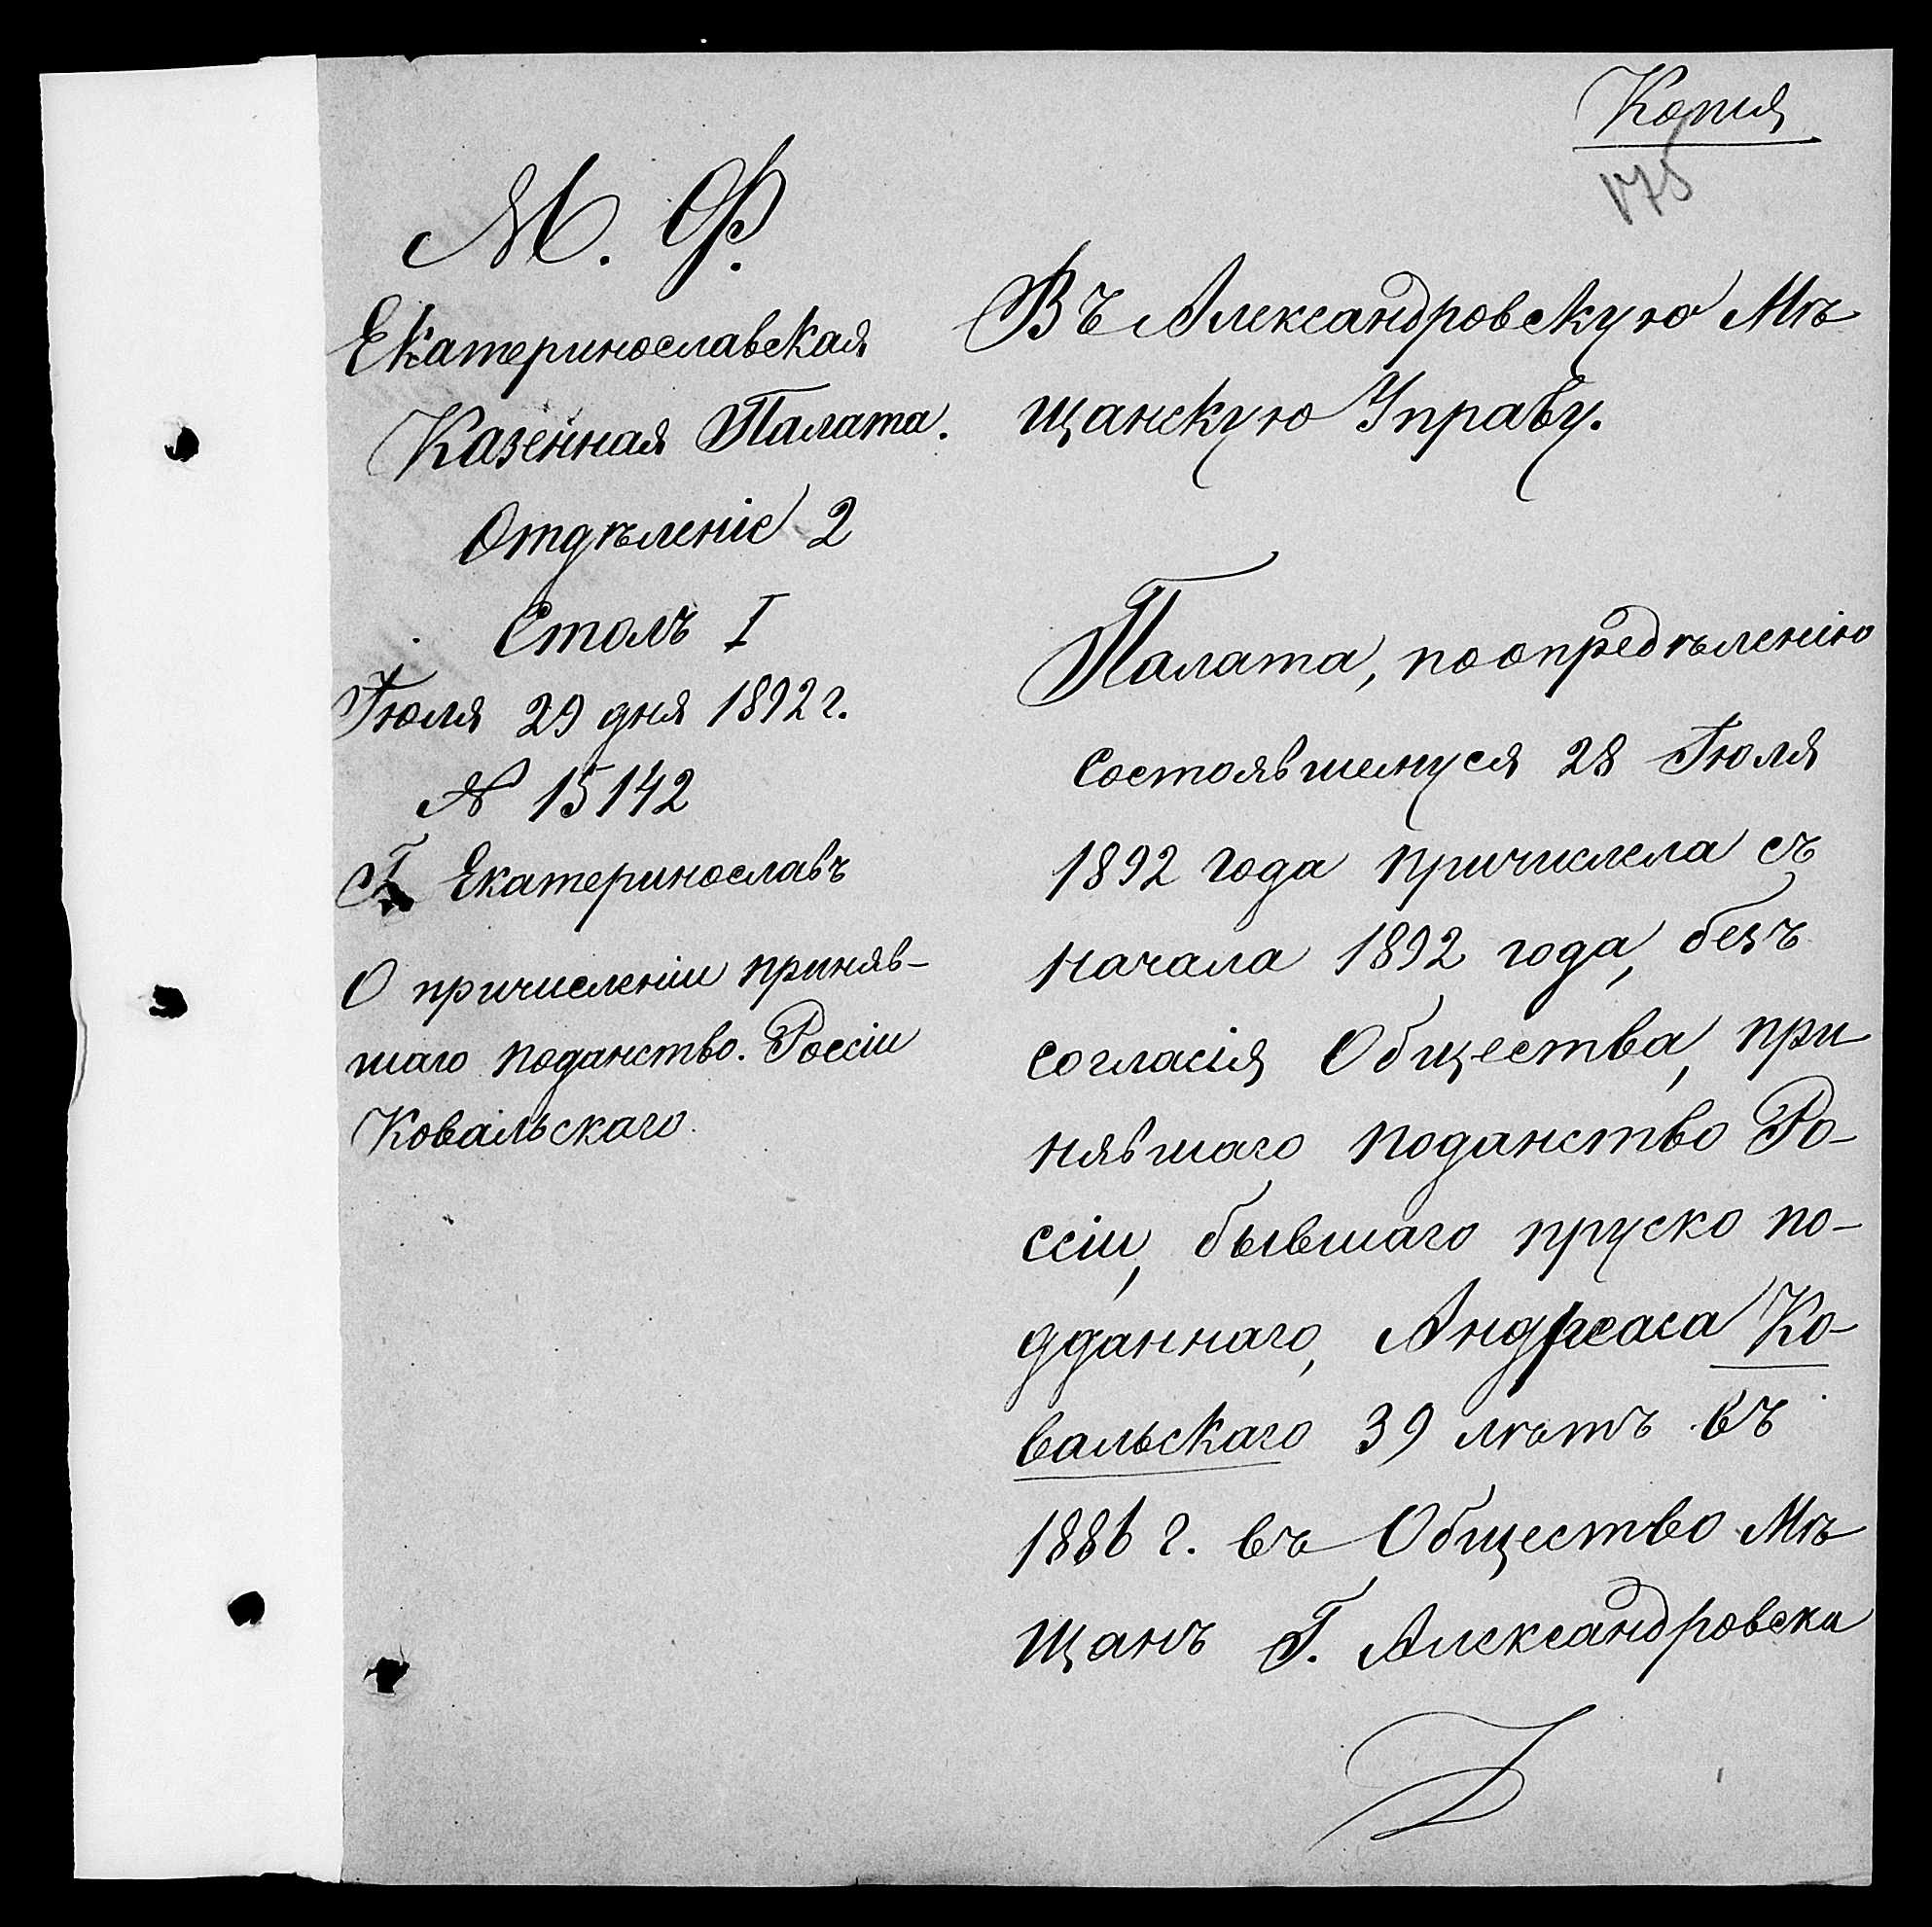 Копія
175
М. Ф.
Екатеринославская
Казенная Палата.
Отдѣленіе 2
Столъ I
Іюля 29 дня 1892 г.
№ 15142
Г. Екатеринославъ
О причисленіи приняв-
шаго поданство. Россіи
Ковальскаго.
Въ Александровскую Мѣ
щанскую Управу.
Палата, по опредѣленію
состоявшемуся 28 Іюля
1892 года причислела съ
начала 1892 года, безъ
согласія Общества, при
нявшаго поданство Ро-
ссіи, бывшаго пруско по-
дданнаго, Андреаса Ко-
вальскаго 39 лѣтъ въ
1886 г. въ Общество Мѣ
щанъ Г. Александровска